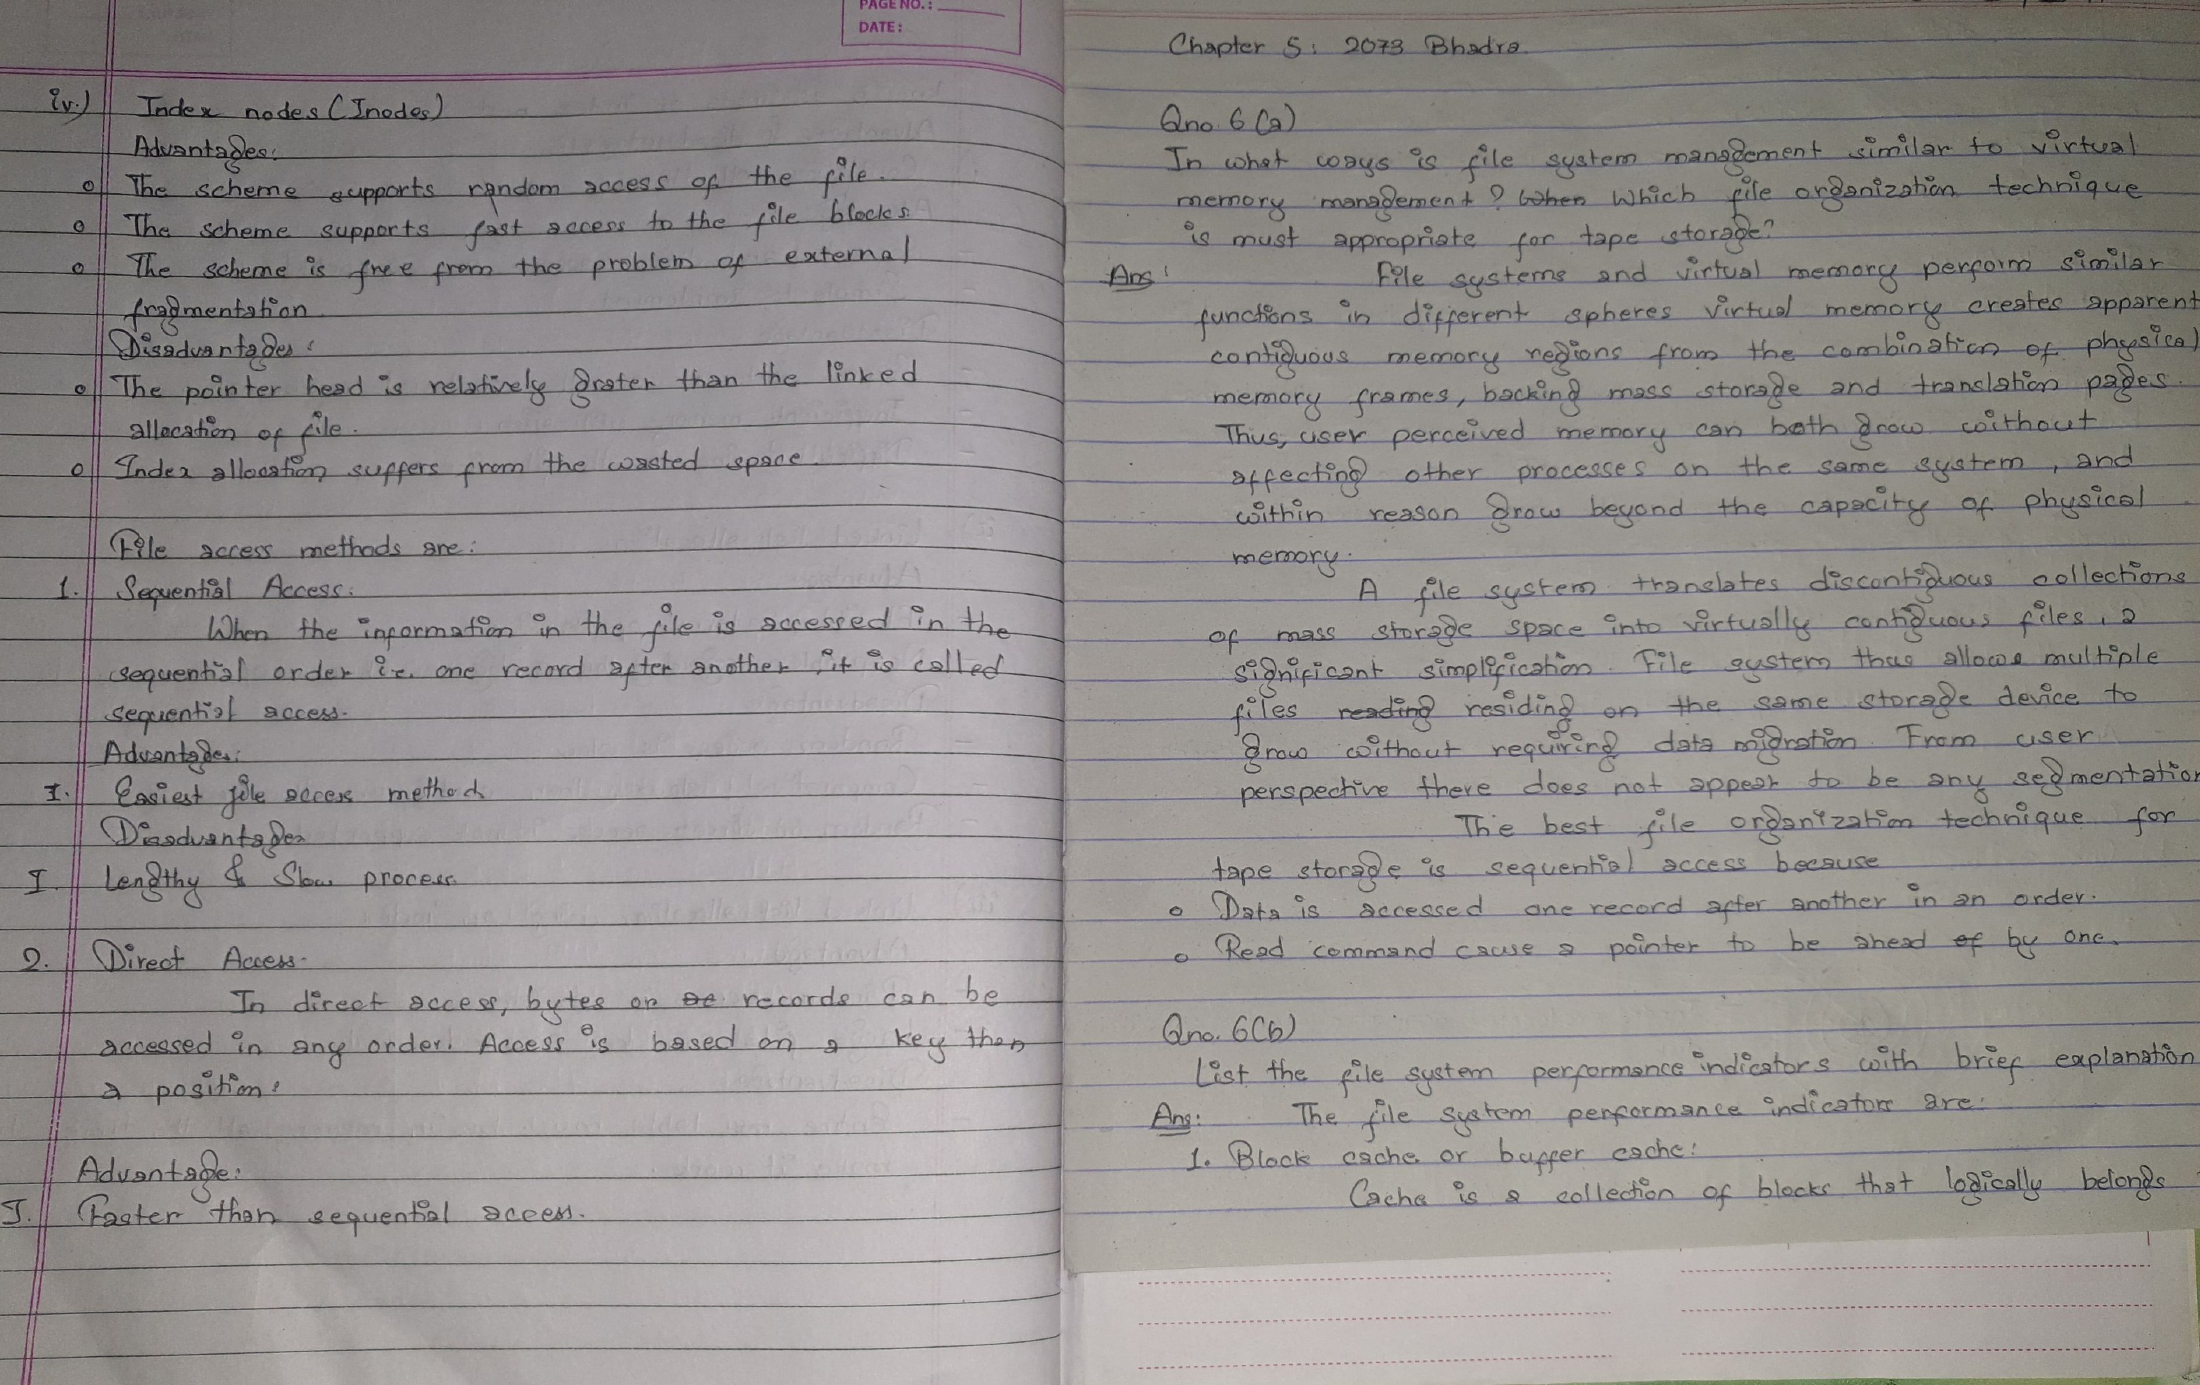 PAGE NO.:
DATE:
iv.) Index nodes (Inodes)
Advantages:
o The scheme supports random access of the file.
o The scheme supports fast access to the file blocks
o The scheme is free from the problem of external
fragmentation
Disadvantages:
o The pointer head is relatively grater than the linked
allocation of file.
o Index allocation suffers from the wasted space
File access methods are:
1. Sequential Access:
When the information in the file is accessed in the
sequential order i.e. one record after another, it is called
sequential access.
Advantages:
I. Easiest file access method
Disadvantages
I. Lengthy & Slow process.
2. Direct Access.
In direct access, bytes or ac records can be
accessed in any order. Access is based on a key than
a position:
Advantage:
I. Faster than sequential access.
Chapter 5: 2073 Bhadra
Qno. 6 (a)
In what ways is file system management similar to virtual
memory management? When Which file organization technique
is must appropriate for tape storage?
Ans: File systems and virtual memory perform similar
functions in different spheres virtual memory creates apparent
contiguous memory regions from the combination of physical
memory frames, backing mass storage and translation pages.
Thus, user perceived memory can both grow without
affecting other processes on the same system, and
within reason grow beyond the capacity of physical
memory.
A file system translates discontiguous collections
of mass storage space into virtually contiguous files, a
significant simplification. File system thus allows multiple
files reading residing on the same storage device to
grow without requiring data migration. From user
perspective there does not appear to be any segmentation
The best file organization technique for
tape storage is sequential access because
o Data is accessed one record after another in an order.
o Read command cause a pointer to be ahead of by one.
Qno. 6(b)
List the file system performance indicators with brief explanation
Ans: The file system performance indicators are:
1. Block cache or buffer cache:
Cache is a collection of blocks that logically belongs